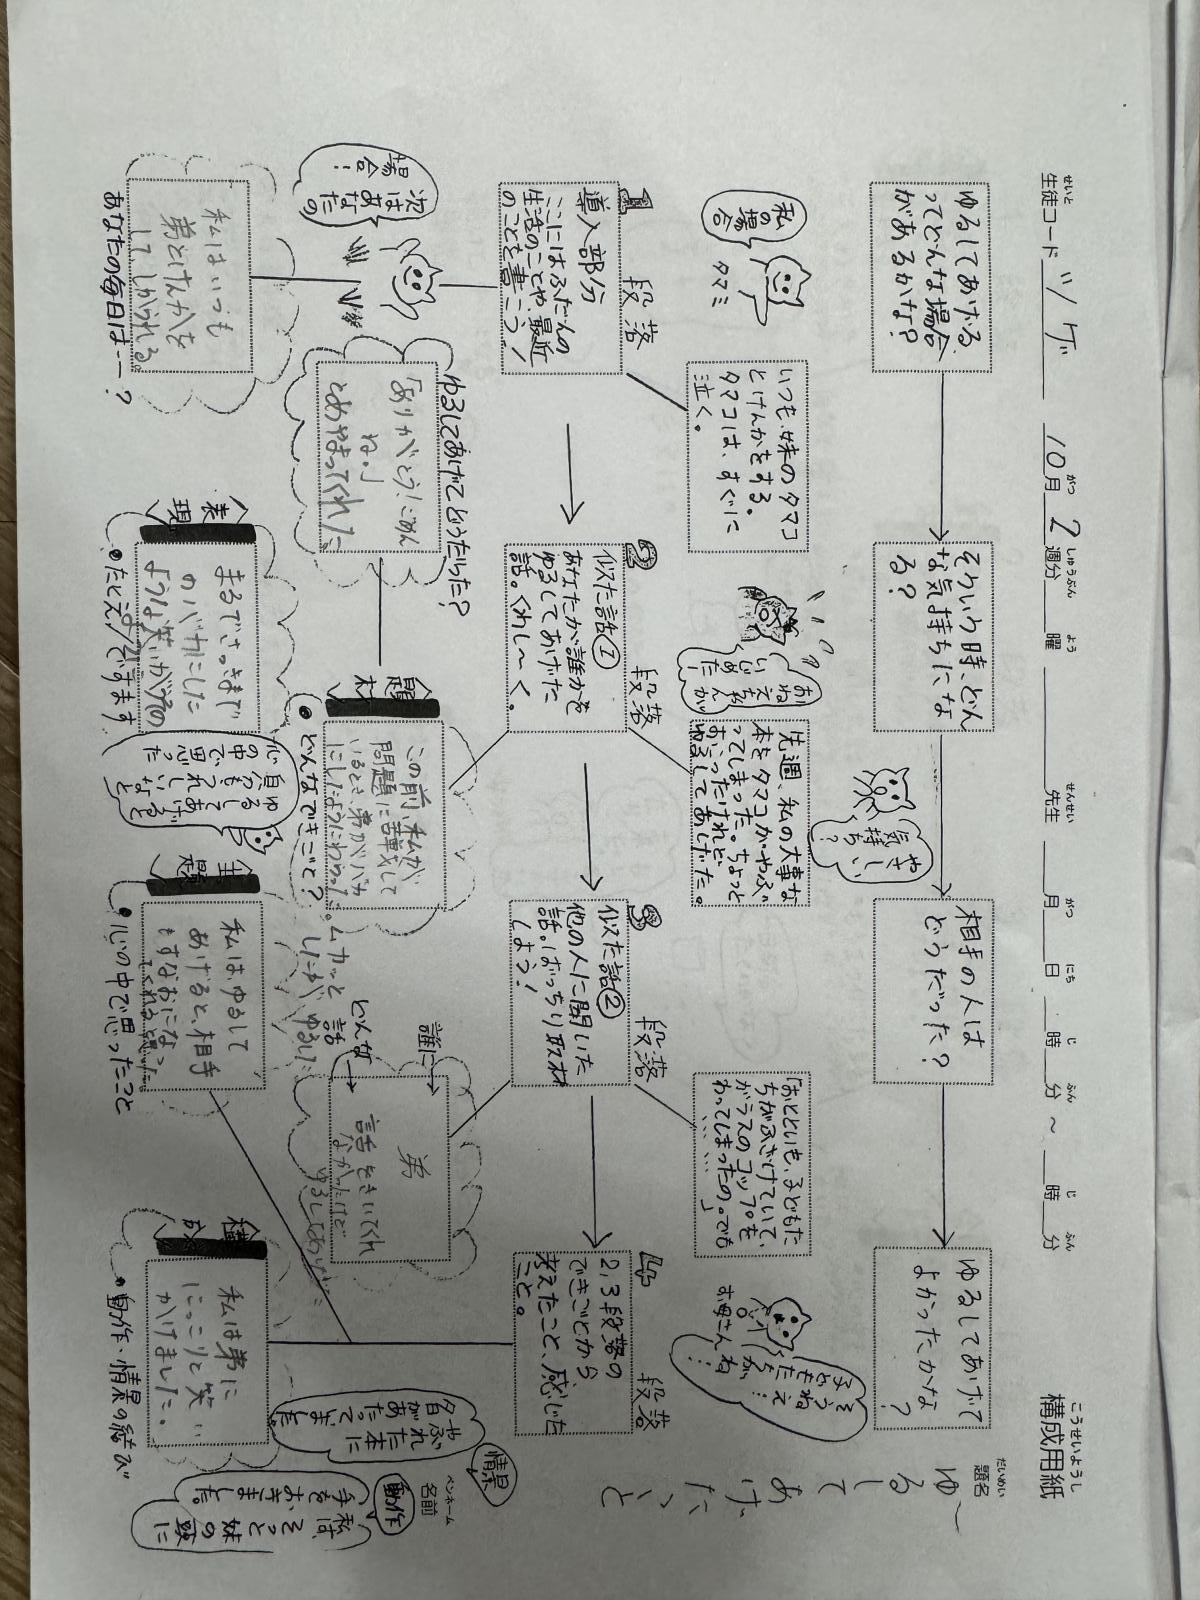 構成用紙
こうせいようし
題名
だいめい
ゆるして
あげた
こと
ペンネーム
名前
生徒コード ツゲ 10月2週分 曜 先生 月 日 時 分 ~ 時 分
せいと がつ しゅうぶん よう せんせい がつ にち じ ふん じ ふん
ゆるしてあげる
ってどんな場合
があるかな?
そういう時、どん
な気持ちにな
る?
相手の人は
どうだった?
ゆるしてあげて
よかったかな?
私の
場合
タマミ
いつも、妹のタマコ
とけんかをする。
タマコは、すぐに
泣く。
おねえちゃんが
いじめた
やさしい
気持ち?
先週、私の大事な
本をタマコがやぶ
ってしまった。ちょっと
おこったけれど、
ゆるしてあげた。
「おとといも、子どもた
ちがふざけていて、
ガラスのコップを
わってしまったの。でも
……」
お母さん
そうねえ…
子どもたちがね…
1 段落
導入部分
ここにはふだんの
生活のことや、最近
のことを書こう!
2 段落
似た話①
あなたが誰かを
ゆるしてあげた
話。くわし~く。
3 段落
似た話②
他の人に聞いた
話。ばっちり取材
しよう!
4 段落
2,3段落の
できごとから
考えたこと、感じた
こと。
次はあなたの
場合!
ゆるしてあげてどうだった?
「ありがとう!ごめん
ね。」
とあやまってくれた
題材
この前、私が
問題に苦戦して
いるとき、弟がバカ
にしたようにわらった。
ムカッと
したが ゆるした
●どんなできごと?
誰に→
どんな話→
弟
話をきいてくれ
なかったけど
ゆるしてあげた
情景
やぶれた本に
夕日が
あたって
いました。
動作
私は、そっと妹の頭に
手をおきました。
私はいつも
弟とけんかを
して、しかられる。
あなたの毎日は…?
表現
まるでさっきまで
のバカにした
ような笑いがうその
●たとえ/ですます
ゆるしてあげると
自分もうれしいなと
心の中で思った
主題
私は、ゆるして
あげると、相手
もすなおになっ
てくれると思った
●心の中で思ったこと
構成
私は弟に
にっこりと笑い
かけました。
●動作・情景の結び